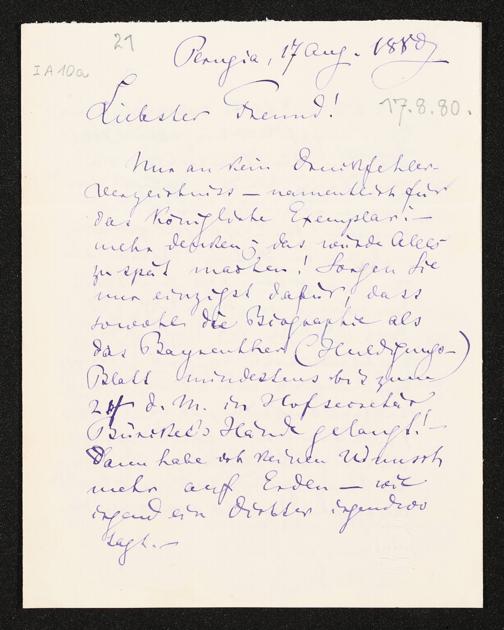 21
Perugia, 17 Aug. 1880
I A 10a
Liebster Freund!
17.8.80.
Nur an kein Druckfehler-
verzeichniss — namentlich für
das königliche Exemplar! —
mehr denken; das würde Alles
zu spät machen! Sorgen Sie
nur einzigst dafür, dass
sowohl die Biographie als
das Bayreuther (Huldigungs-)
Blatt mindestens bis zum
d. M. in Hofsecretär
Bürkel's Hände gelangt! —
Dann habe ich keinen Wunsch
mehr auf Erden — wie
irgend ein Dichter irgendwo
sagt. —